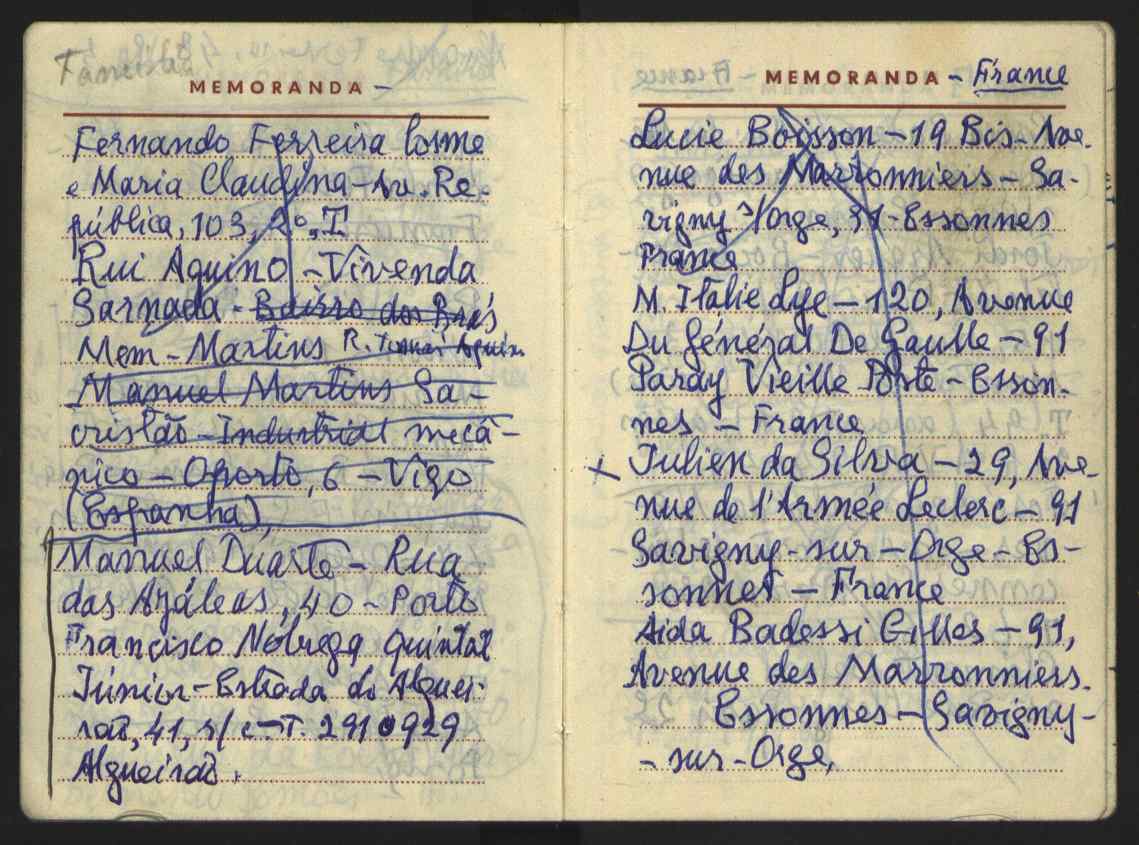 MEMORANDA -
Fernando Ferreira Cosme
e Maria Claudina - Av. Re-
pública, 103, 2º, I
Rui Aquino - Vivenda
Sarnada - Bairro dos Brás
Mem - Martins R. Tomás Aquino
Manuel Martins Sa-
cristão - Industrial mecâ-
nico - Oporto, 6 - Vigo
(Espanha),
Manuel Duarte - Rua
das Azáleas, 40 - Porto
Francisco Nóbrega Quintal
Júnior - Estrada do Alguei-
rão, 41, r/c - T. 2910929
Algueirão.
MEMORANDA - France
Lucie Boisson - 19 Bis - Ave-
nue des Marronniers - Sa-
vigny s/orge, 91 - Essonnes
France
M. Italie Lye - 120, Avenue
Du Général De Gaulle - 91
Paray Vieille Poste - Esson-
nes - France
x Julien da Silva - 29, Ave-
nue de l'Armée Leclerc - 91
Savigny - sur - Orge - Es-
sonnes - France
Aida Badessi Gilles - 91,
Avenue des Marronniers.
Essonnes - Savigny -
- sur - Orge,